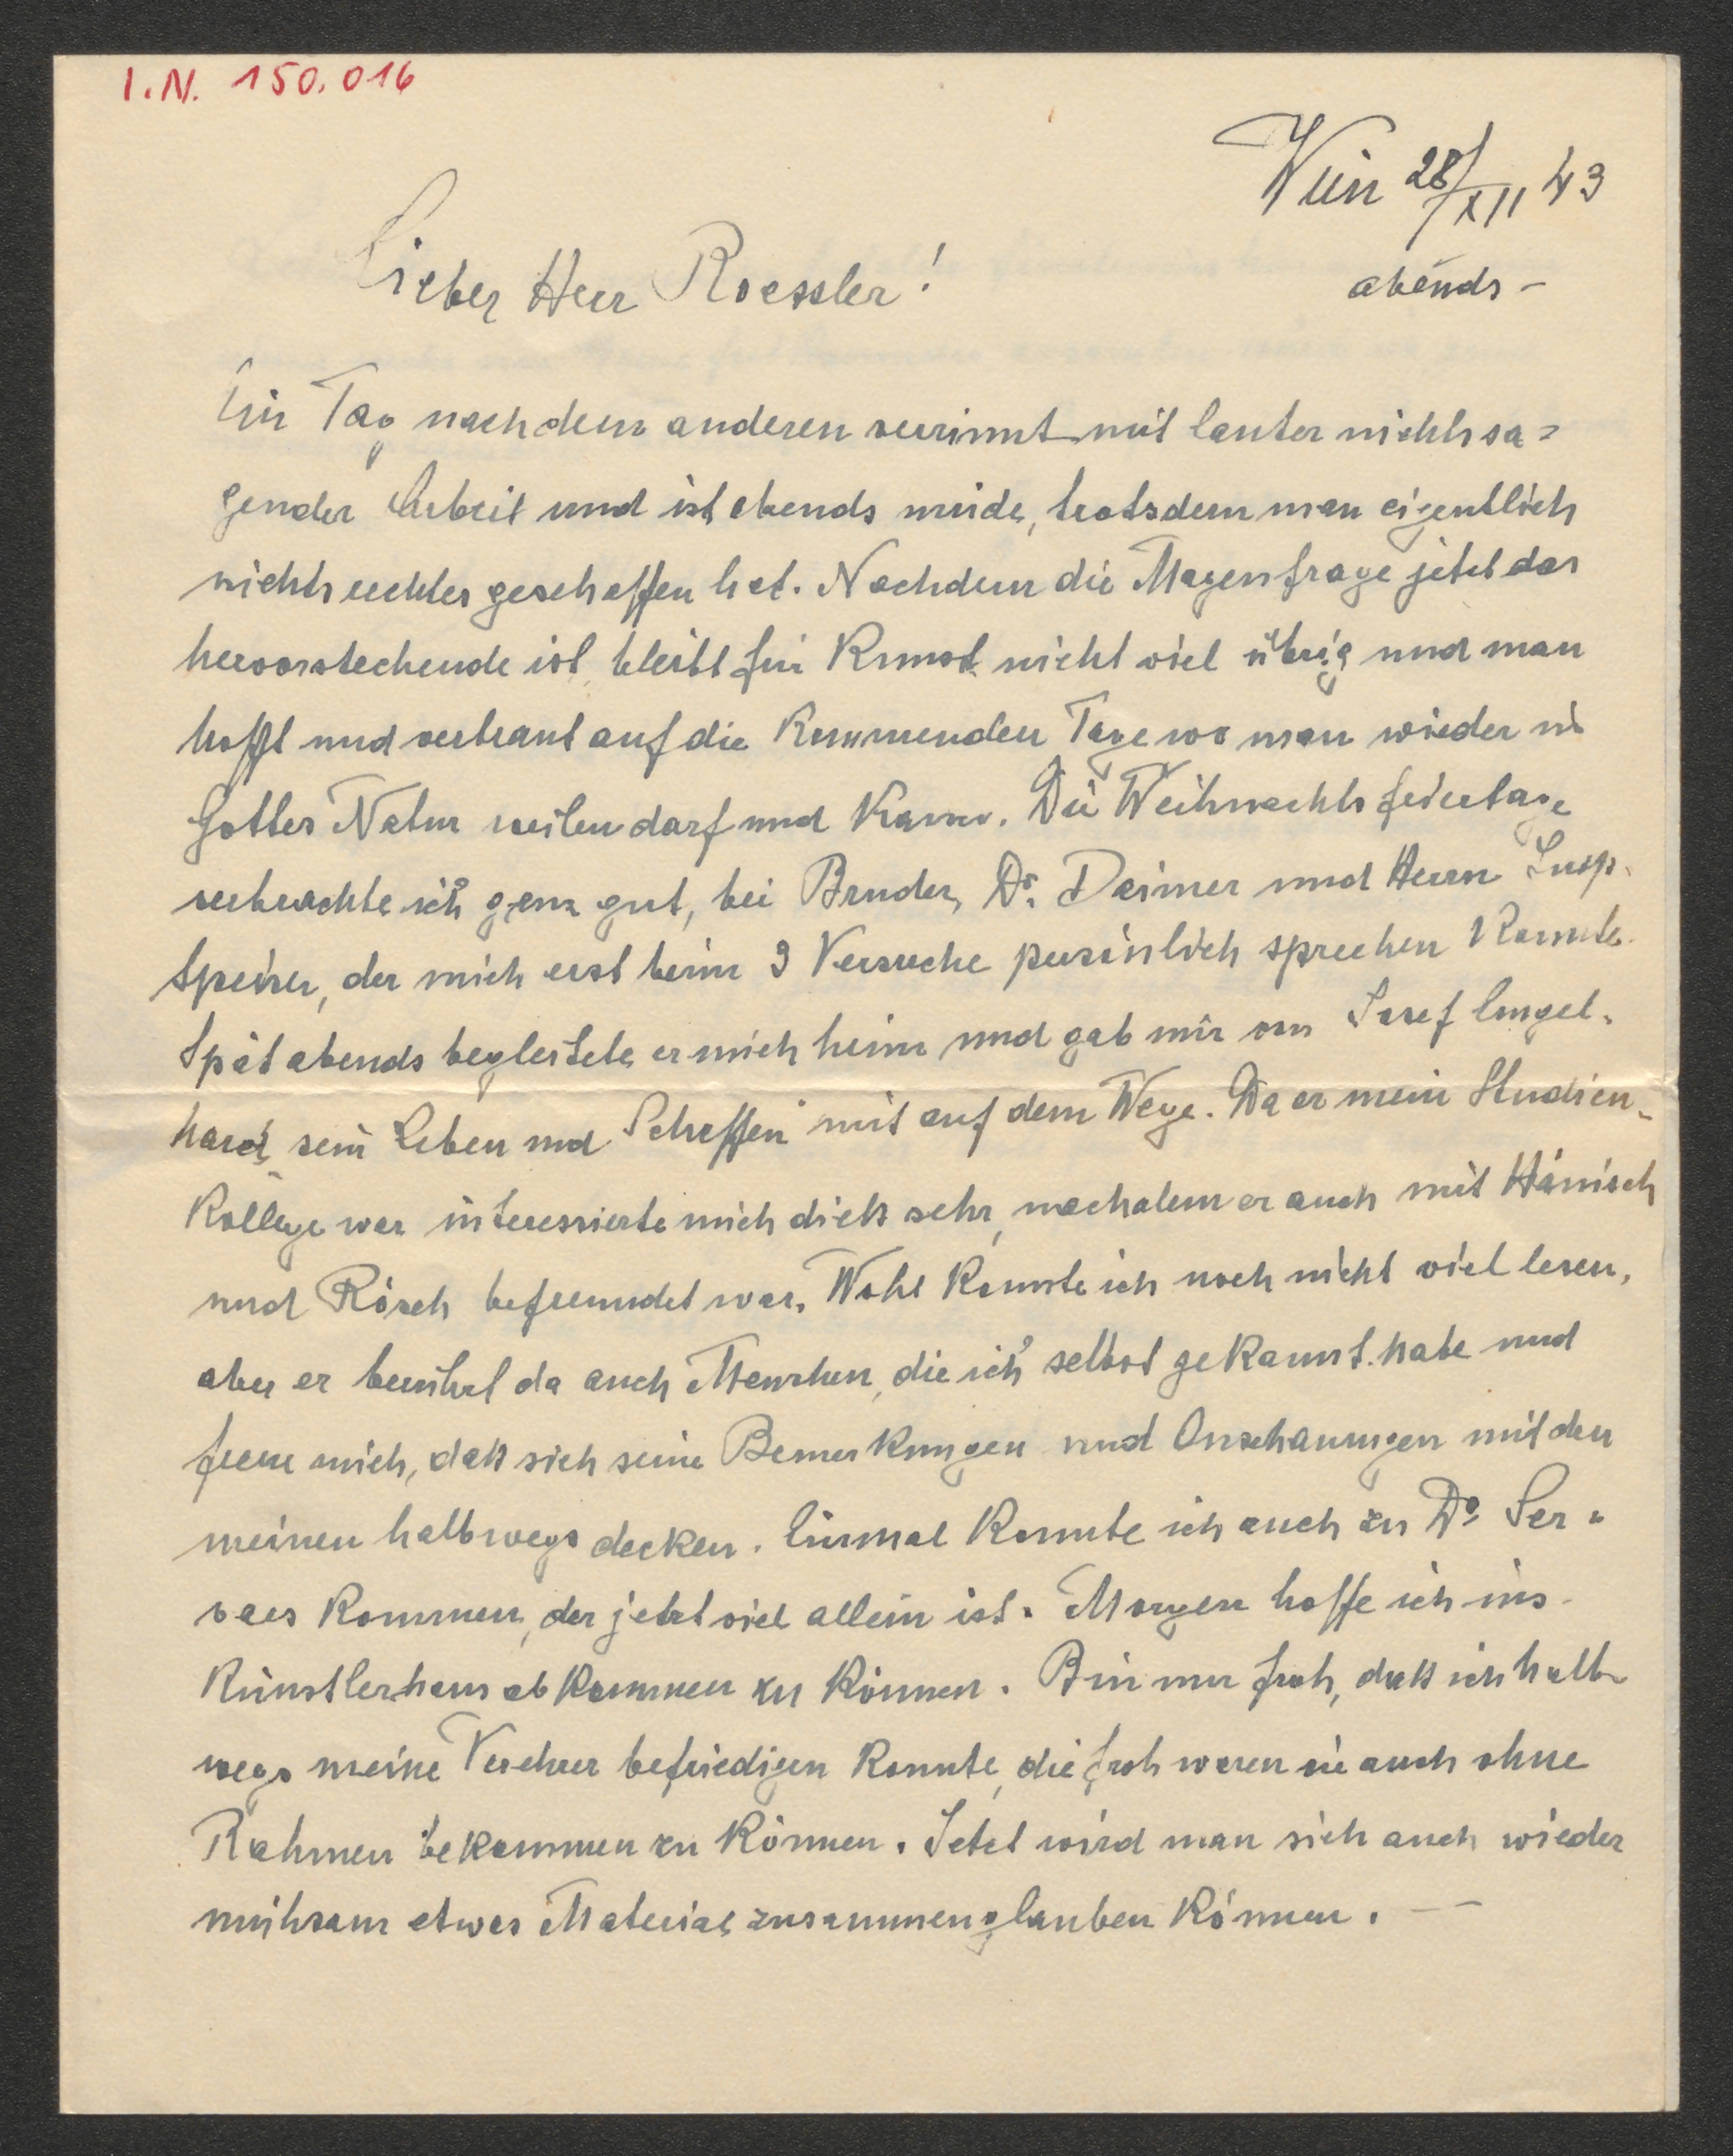 I.N. 150.016
Wien 28/XII 43
abends –
Lieber Herr Roessler!
Ein Tag nach dem anderen verrinnt mit lauter nichtssa=
gender Arbeit und ist abends müde, trotzdem man eigentlich
nichts rechtes geschaffen hat. Nachdem die Magenfrage jetzt das
hervorstechende ist, bleibt für Kunst nicht viel übrig und man
hofft und vertraut auf die Kommenden Tage wo man wieder in
Gottes Natur weilen darf und Kann. Die Weihnachtsfeiertage
verbrachte ich ganz gut, bei Bruder, Dr. Deimer und Herrn Insp.
Speiser, der mich erst beim 3 Versuche persönlich sprechen Konnte.
Spät abends begleitete er mich heim und gab mir von Josef Engel-
hard, sein Leben und Schaffen" mit auf dem Wege. Da er mein Studien-
Kollege war interessierte mich dieß sehr, nachdem er auch mit Hänisch
und Rösch befreundet war. Wohl Konnte ich noch nicht viel lesen,
aber er berührt da auch Menschen, die ich selbst geKannt habe und
freue mich, daß sich seine BemerKungen und Anschauungen mit den
meinen halbwegs decKen. Einmal Konnte ich auch zu Dr. Ser-
vaes Kommen, der jetzt viel allein ist. Morgen hoffe ich ins
Künstlerhaus abKommen zu Können. Bin nur froh, daß ich halb-
wegs meine Verehrer befriedigen Konnte, die froh waren sie auch ohne
Rahmen beKommen zu Können. Jetzt wird man sich auch wieder
mühsam etwas Material zusammenglauben Können. — —